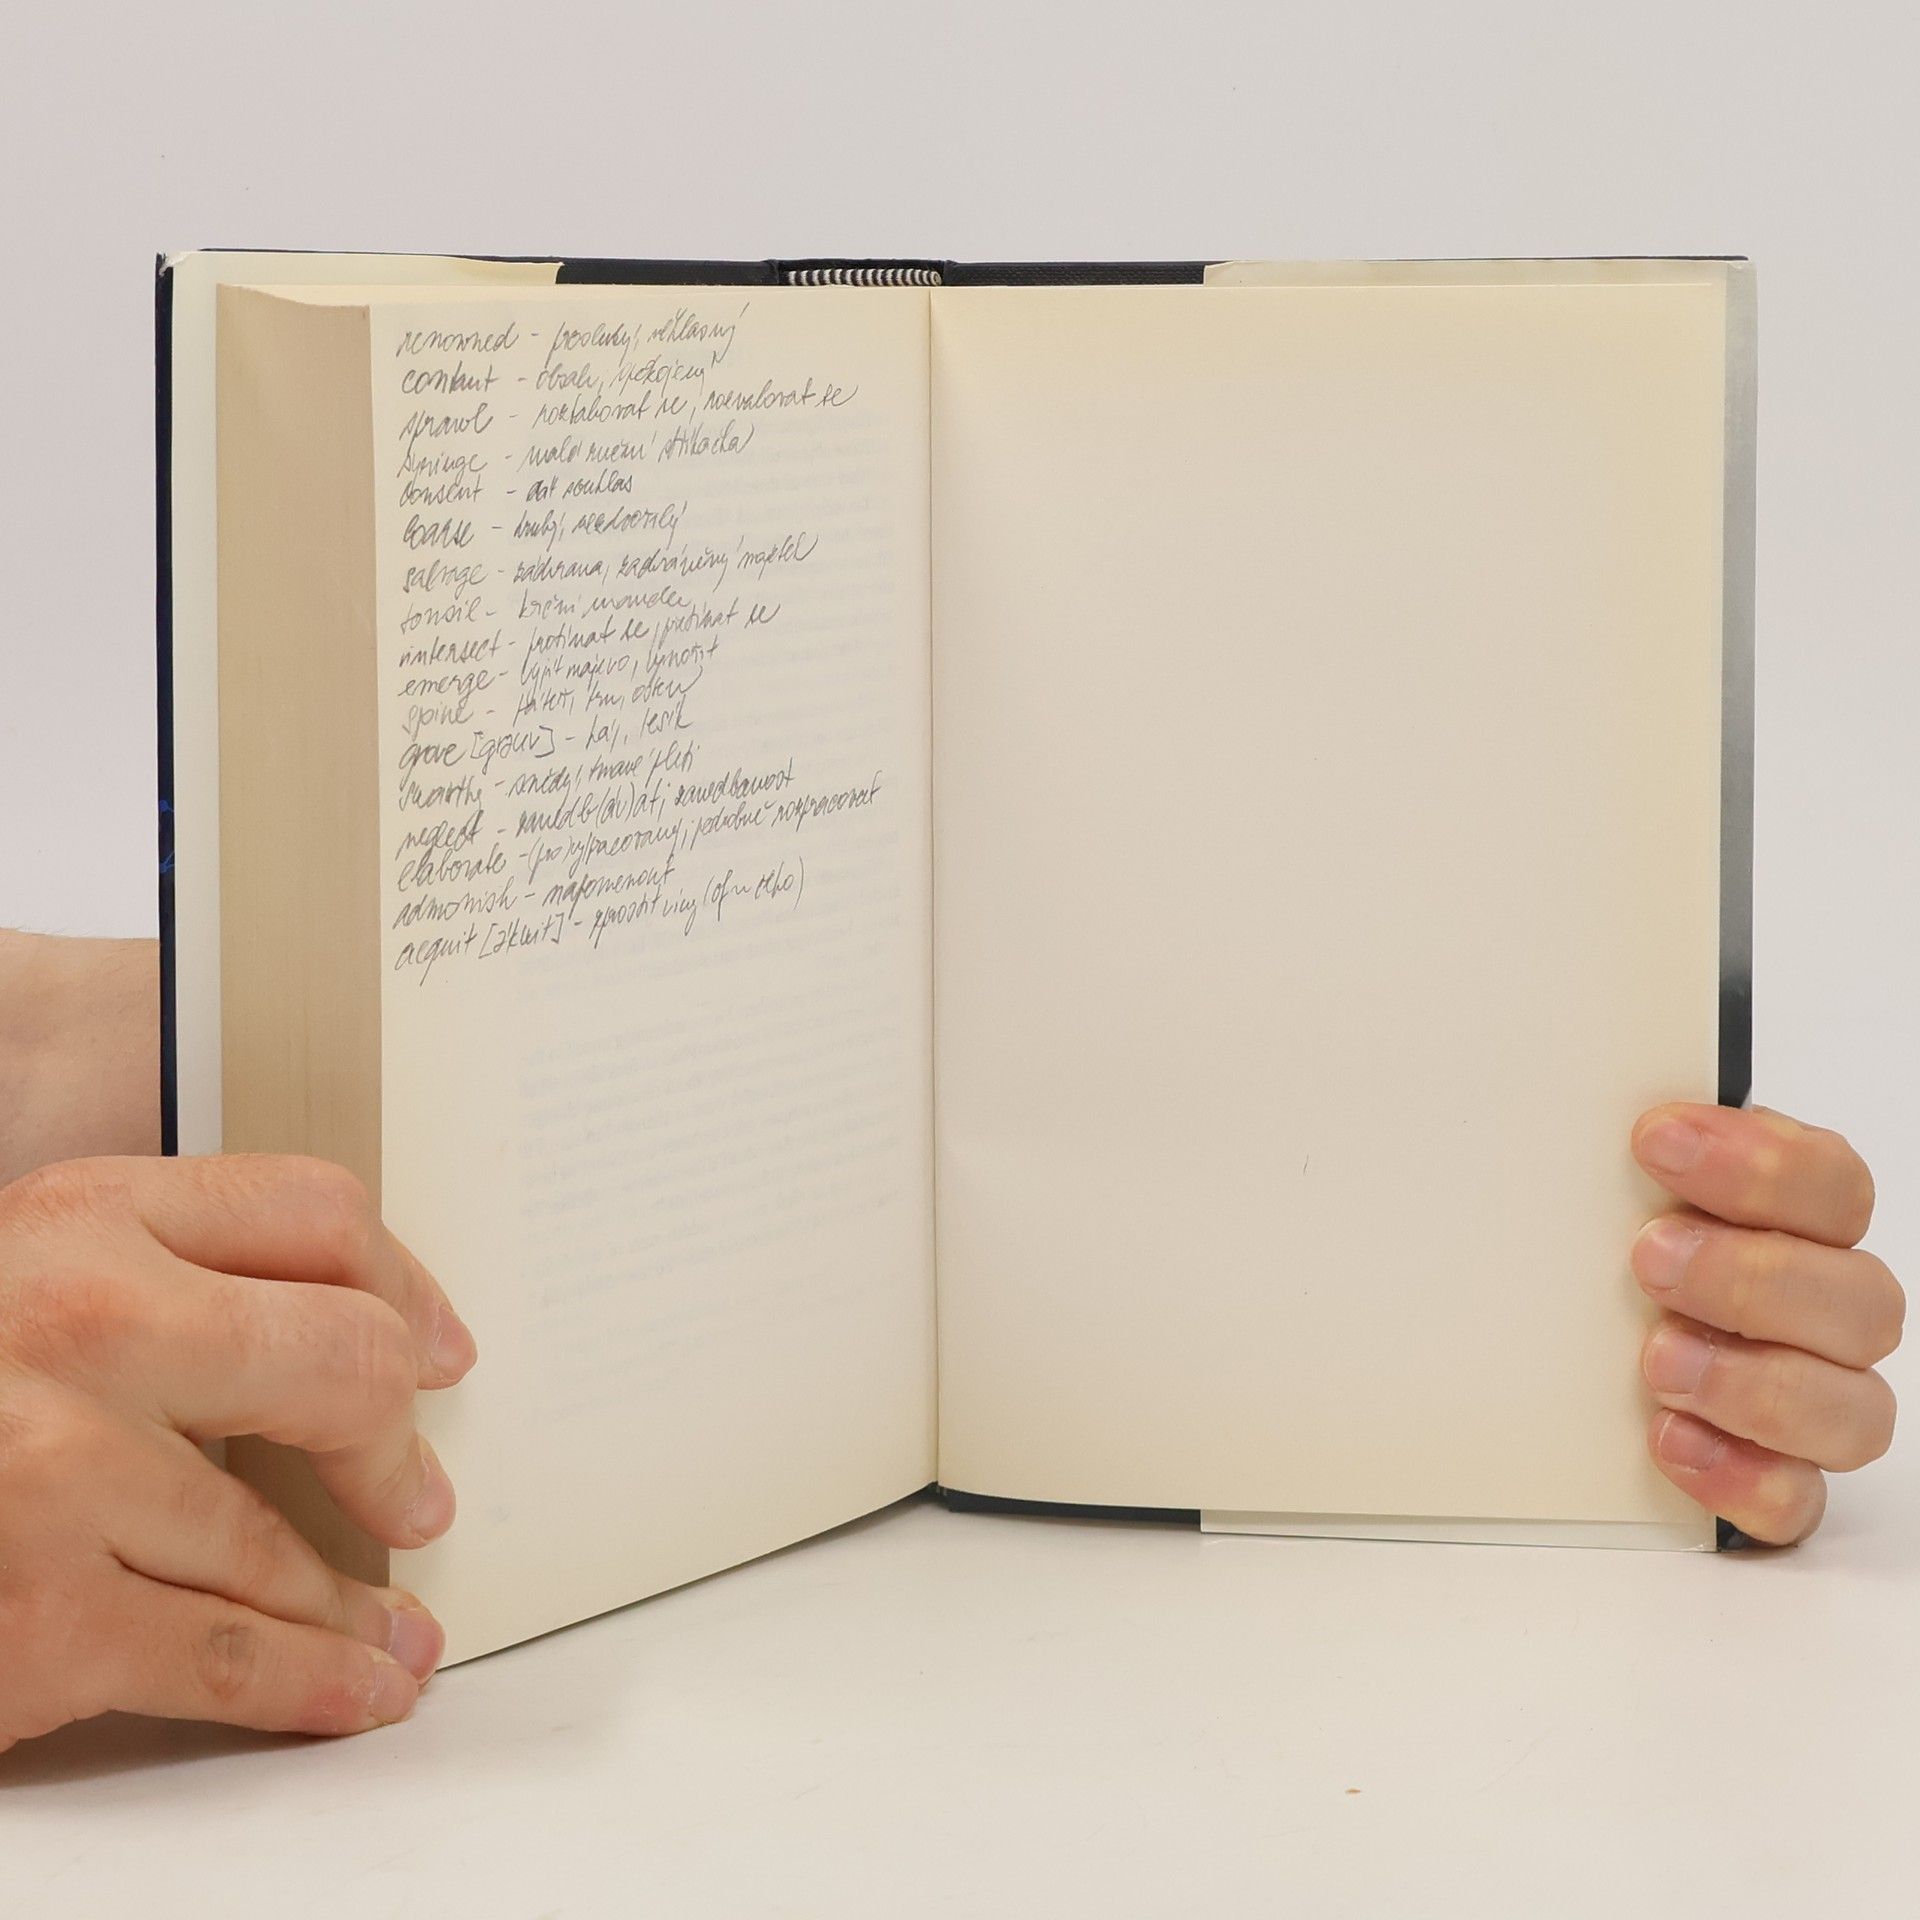 renowned - proslulý, věhlasný
content - obsah, spokojený
sprawl - roztahovat se, rozvalovat se
syringe - malá ruční stříkačka
consent - dát souhlas
coarse - hrubý, nezdvořilý
salvage - záchrana, zachráněný majetek
tonsil - krční mandle
intersect - protínat se, protínat se
emerge - vyjít najevo, vynořit
spine - páteř, trn, osten
grove [grəuv] - háj, lesík
swarthy - snědý, tmavé pleti
neglect - zanedb(áv)at; zanedbanost
elaborate - (pro)vypracovaný; podrobně rozpracovat
admonish - napomenout
acquit [ə'kwit] - zprostit viny (of ~ čeho)